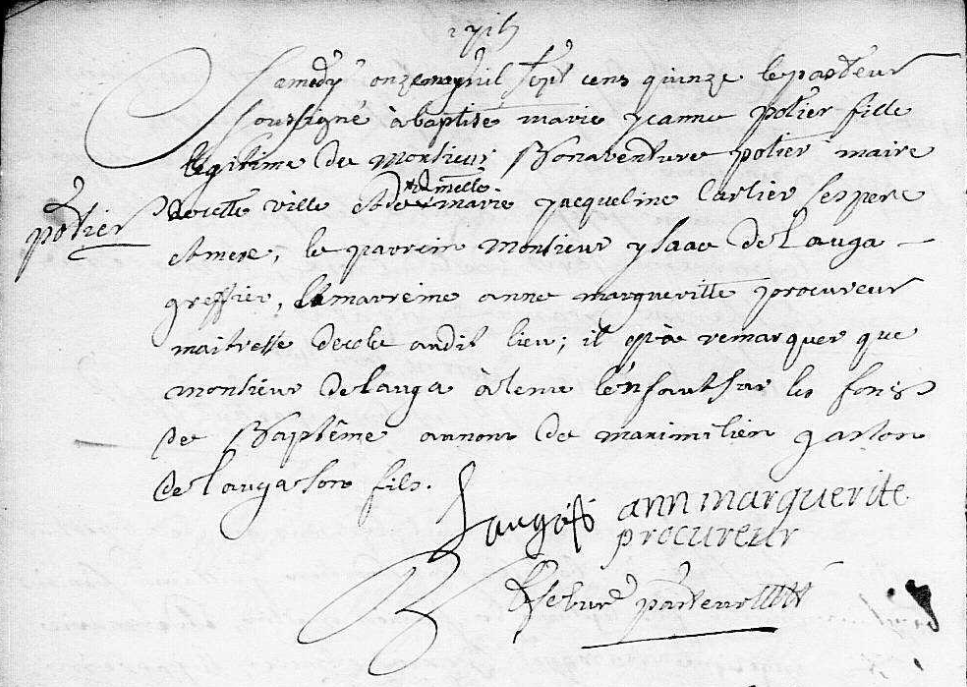 1715
Samedy onze may mil sept cens quinze le pasteur
soussigné à baptisé marie yeanne potier fille
legitime de Monsieur Bonaventure potier maire
potier
de cette ville et de mad.melle marie jacqueline Carlier ses pere
et mere; le parrein monsieur ysaac De Lauga
greffier, la marreine anne margueritte procureur
maitresse decole audit lieu; il est à remarquer que
monsieur de Lauga à tenu l'enfant sur les fons
de Baptême au nom de maximilien gaston
de Lauga son fils.
Lauga ann marguerite
procureur
pasteur